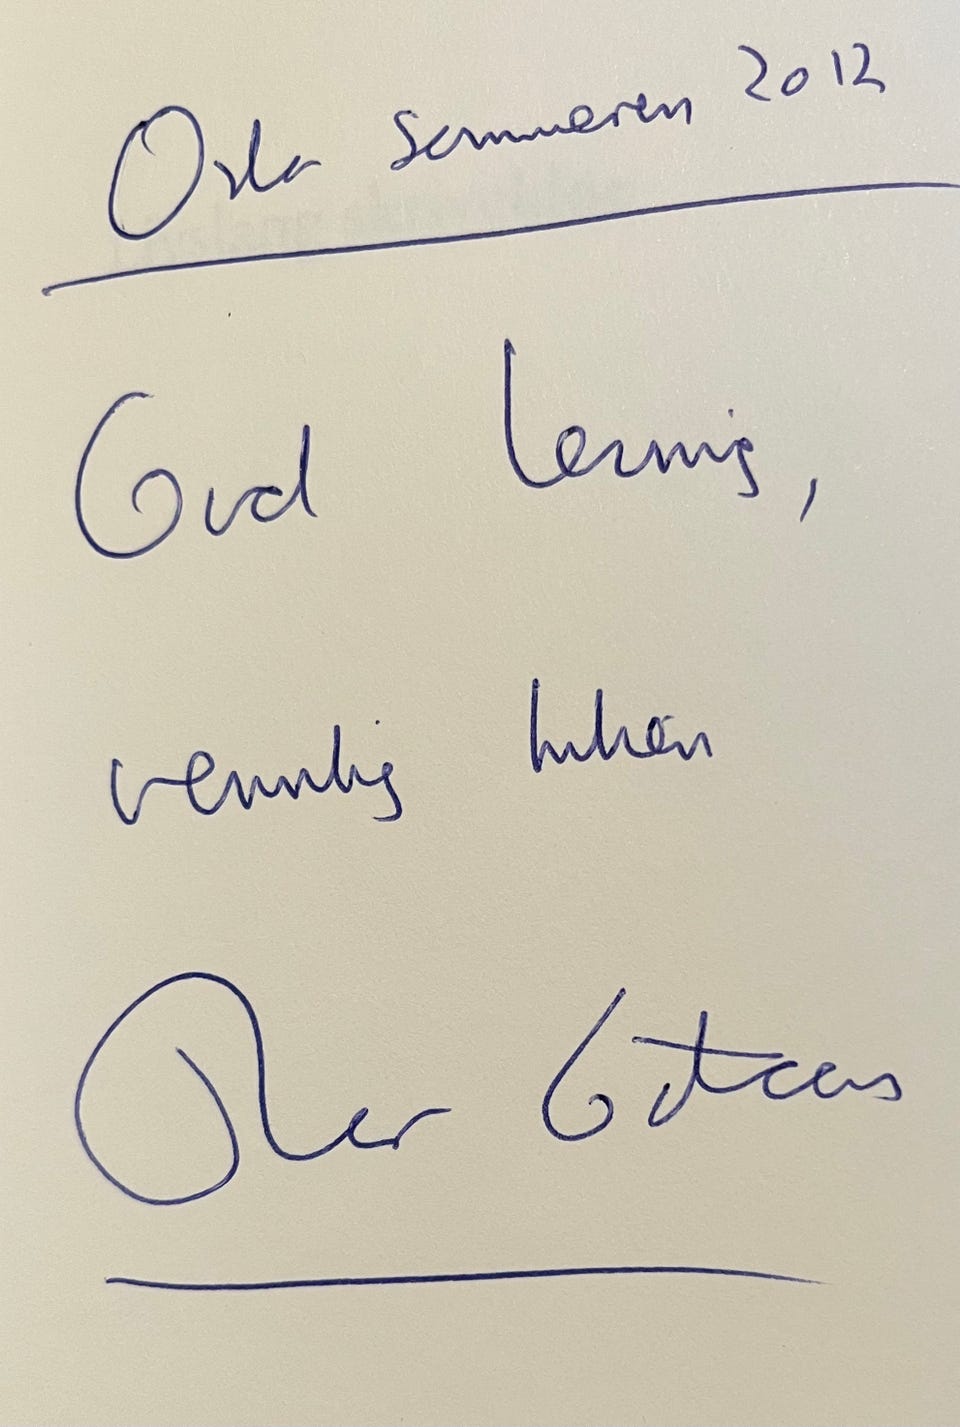 Oslo sommeren 2012
God lesning,
vennlig hilsen